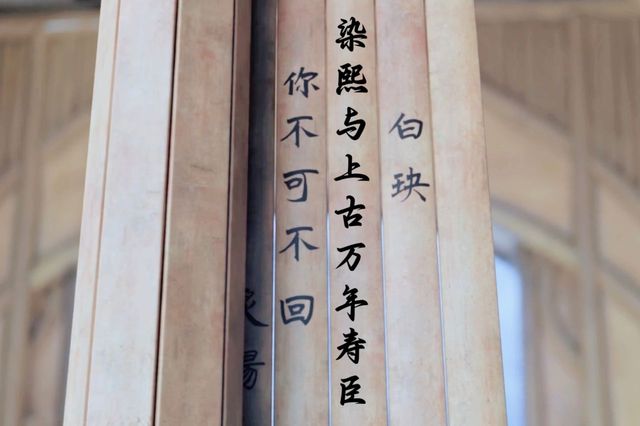 白玦
染熙与上古万年寿臣
你不可不回